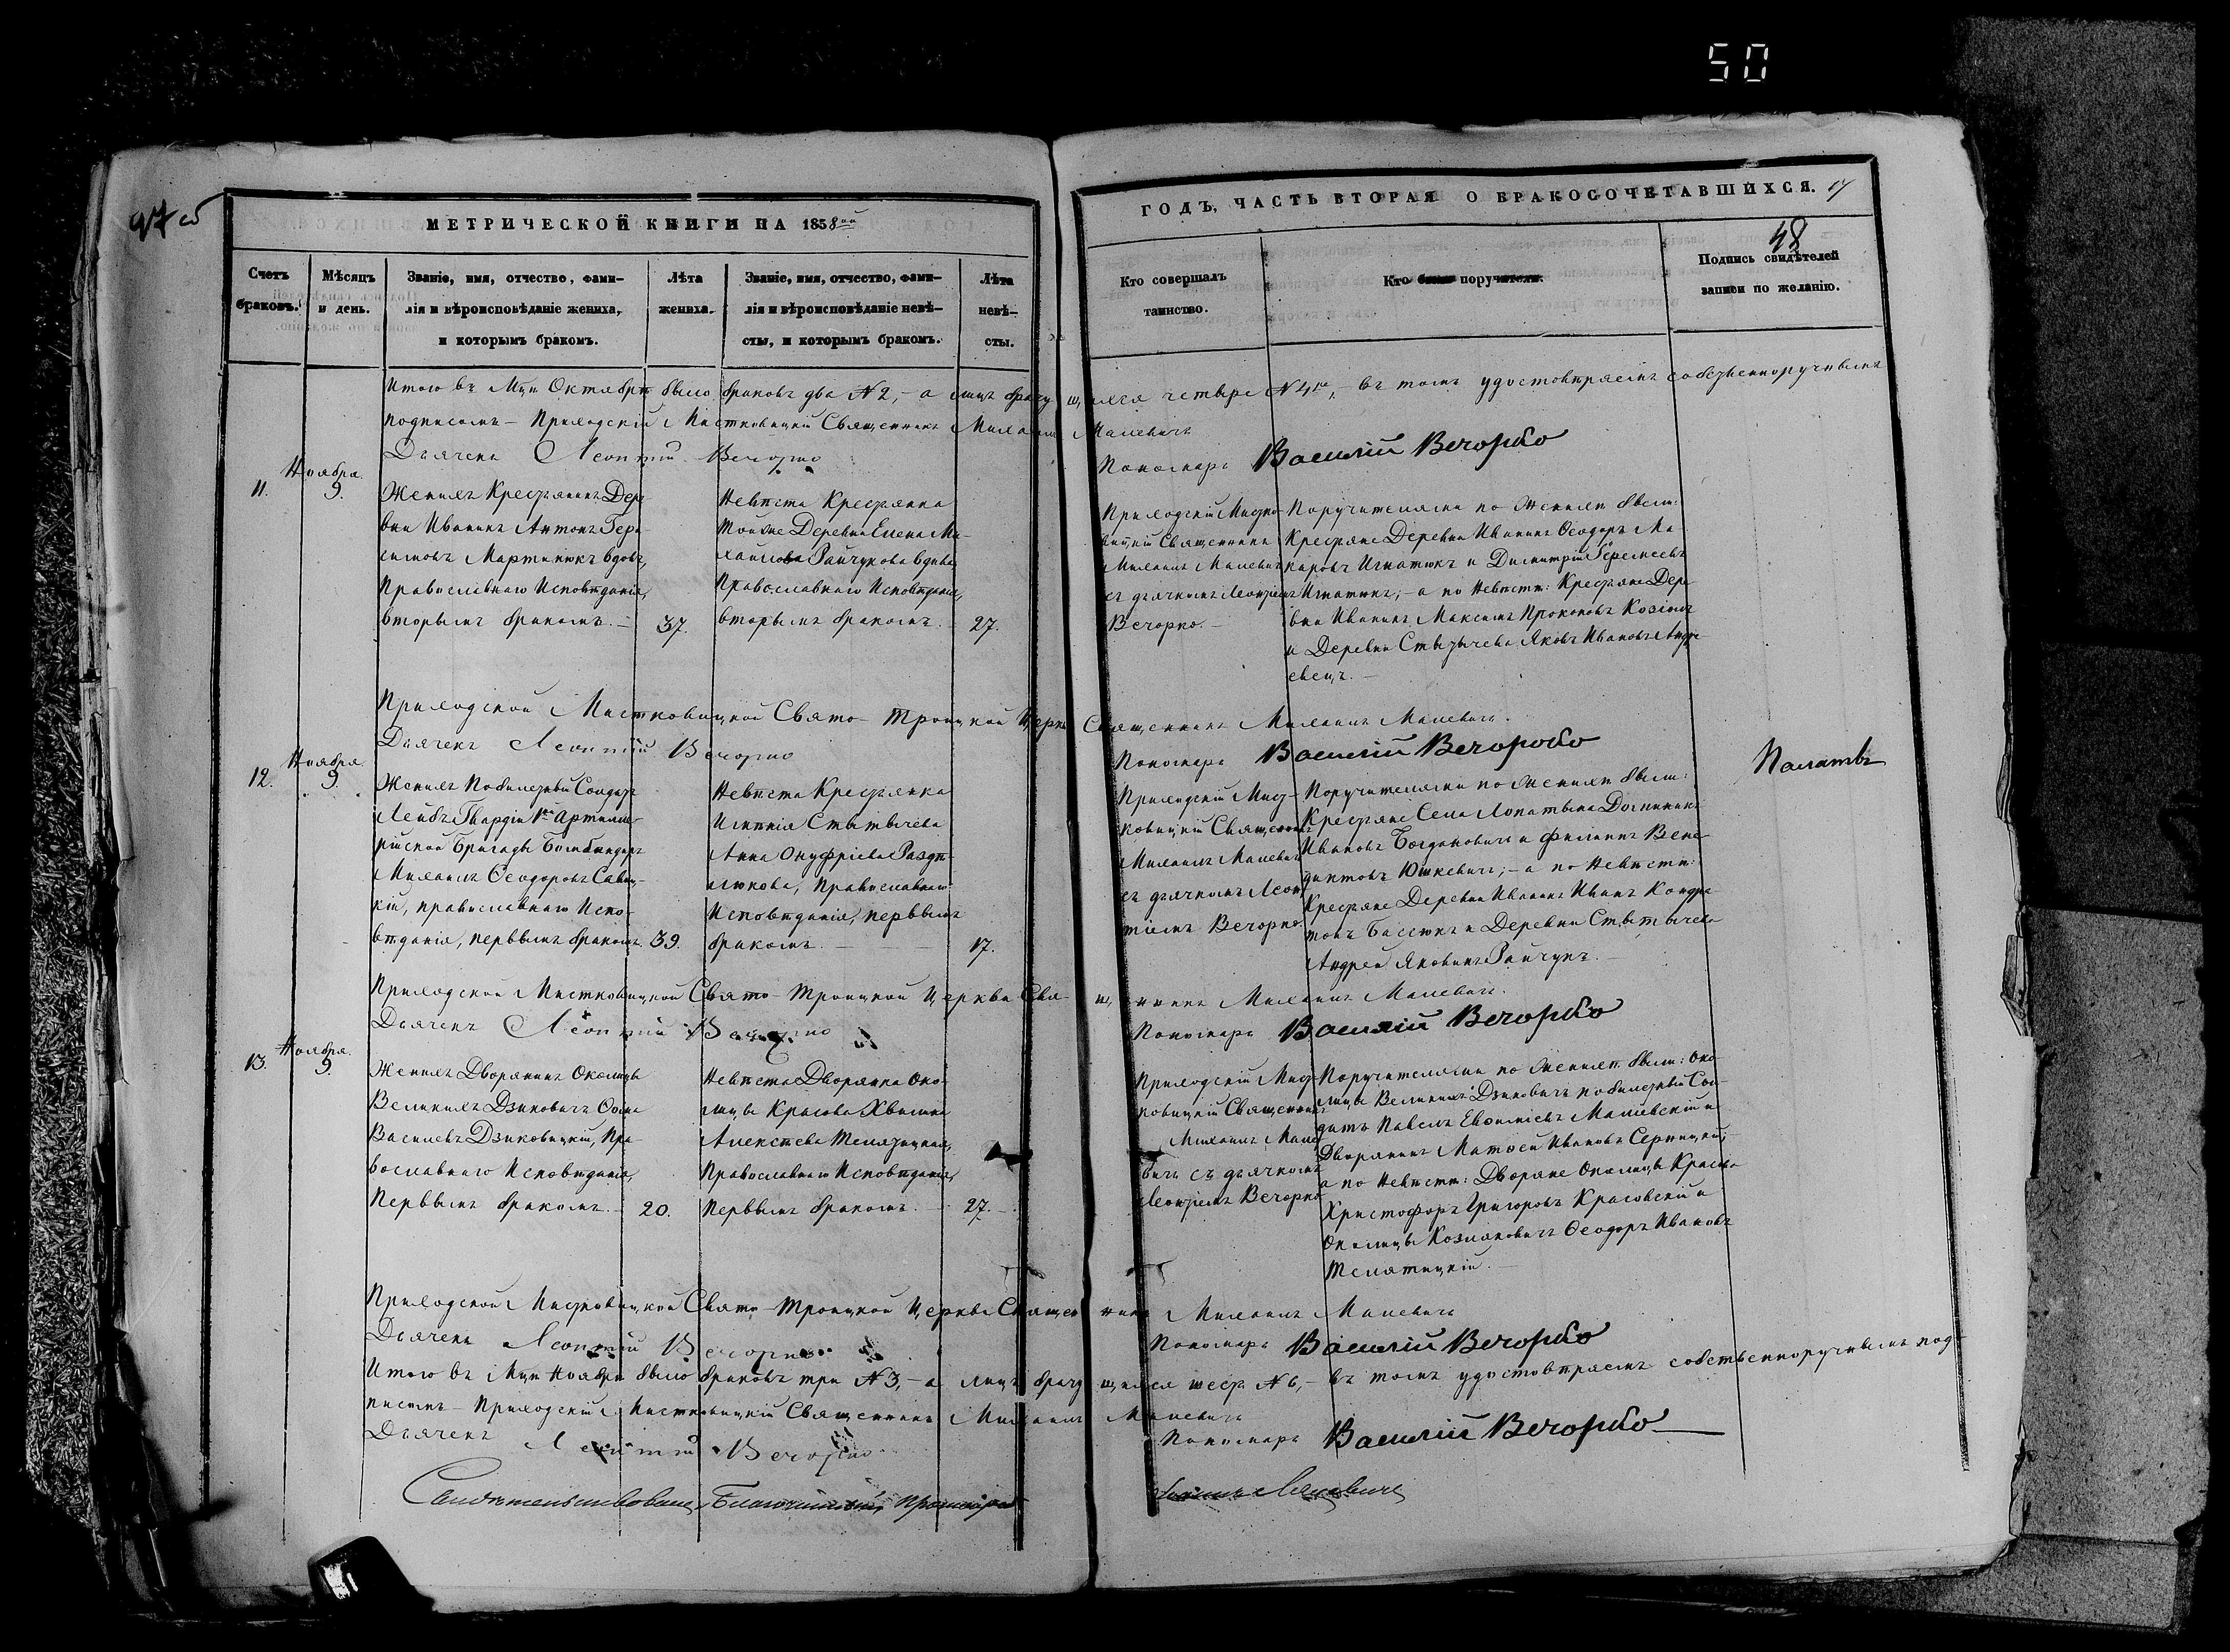 50
47 об
МЕТРИЧЕСКОЙ КНИГИ НА 1858ой
Счетъ браковъ.
Мѣсяцъ и день.
Званіе, имя, отчество, фами-
лія и вѣроисповѣданіе жениха,
и которымъ бракомъ.
Лѣта
жениха.
Званіе, имя, отчество, фами-
лія и вѣроисповѣданіе невѣ-
сты, и которымъ бракомъ.
Лѣта
невѣ-
сты.
ГОДЪ, ЧАСТЬ ВТОРАЯ О БРАКОСОЧЕТАВШИХСЯ. 17
48
Кто совершалъ
таинство.
Кто были поручители.
Подпись свидѣтелей
записи по желанію.
Итого въ Мцѣ Октябрѣ было браковъ два N 2, - а лицъ брачущихся четыре N 4ре, - въ томъ удостовѣряемъ собственноручнымъ
подписомъ - Приходскій Мистковицкій Священникъ Михаилъ Малевичъ
Дьячекъ Леонтій Вечорко
Пономарь Василій Вечорко
11.
Ноября
9.
Женихъ Крестьянинъ Дер
вни Иваникъ Антонъ Гера-
симовъ Мартинюкъ вдовъ,
Православнаго Исповѣданія,
вторымъ бракомъ. -
37.
Невѣста Крестьянка
Тойже Деревни Елена Ми-
хайлова Райчукова вдова,
Православнаго Исповѣданія,
вторымъ бракомъ.
27.
Приходскій Мистко-
вицкій Священникъ
Михаилъ Малевичъ
съ дьячкомъ Леонтіемъ
Вечорко. -
Поручителями по Женихѣ были:
Крестьяне Деревни Иваникъ Ѳеодоръ Ма-
каровъ Игнатюкъ и Димитрій Геремеевъ
Игнатюкъ, - а по Невѣстѣ: Крестьяне Дере-
вни Иваникъ Максимъ Прокоповъ
и Деревни Стытычева Яковъ Ивановъ
Приходской Мистковицкой Свято-Троицкой Церкви Священникъ Михаилъ Малевичъ.
Дьячекъ Леонтій Вечорко
Пономарь Василій Вечорко
12.
Ноября
9.
Женихъ Побилетный Солдатъ
Лейбъ Гвардіи 1ой Артилле-
рійской Бригады Бомбандиръ
Михаилъ Ѳеодоровъ Савиц-
кій, православнаго Испо-
вѣданія, первымъ бракомъ.
39.
Невѣста Крестьянка
Имѣнія Стытычева
Анна Онуфріева
Православнаго
Исповѣданія, первымъ
бракомъ.
17.
Приходскій Мист-
ковицкій Священникъ
Михаилъ Малевичъ
съ дьячкомъ Леон-
тіемъ Вечорко.
Поручителями по Женихѣ были:
Крестьяне Села Лопатына Доминикъ
Ивановъ Богдановичъ и Филиппъ Вене-
диктовъ Юшкевичъ, - а по Невѣстѣ:
Крестьяне Деревни Иваникъ Иванъ Кондра-
товъ Басюкъ и Деревни Стытычева
Андрей Яковинъ Райчукъ. -
Приходской Мистковицкой Свято-Троицкой Церкви Священникъ Михаилъ Малевичъ.
Дьячекъ Леонтій Вечорко
Пономарь Василій Вечорко
13.
Ноября
9.
Женихъ Дворянинъ Околицы
Великихъ Дзиковичъ Ѳома
Васильевъ Дзиковицкій, Пра-
вославнаго Исповѣданія,
Первымъ бракомъ. -
20.
Невѣста Дворянка Око-
лицы Красова
Алексѣева Телятицкая,
Православнаго Исповѣданія,
Первымъ бракомъ.
27.
Приходскій Мист-
ковицкій Священникъ
Михаилъ Мале-
вичъ съ дьячкомъ
Леонтіемъ Вечорко
Поручителями по Женихѣ были: Око-
лицы Великихъ Дзиковичъ побилетный Сол-
датъ Павелъ Евѳиміевъ Малевскій и
Дворянинъ Матѳей Ивановъ Серницкій,
а по Невѣстѣ: Дворяне Околицы Красова
Христофоръ Григоровъ Красовскій и
Околицы Козляковичъ Ѳеодоръ Ивановъ
Телятицкій. -
Приходской Мистковицкой Свято-Троицкой Церкви Священникъ Михаилъ Малевичъ
Дьячекъ Леонтій Вечорко
Пономарь Василій Вечорко
Итого въ Мцѣ Ноябрѣ было браковъ три N 3, - а лицъ брачущихся шесть N 6, - въ томъ удостовѣряемъ собственноручнымъ под-
писомъ - Приходскій Мистковицкій Священникъ Михаилъ Малевичъ
Дьячекъ Леонтій Вечорко
Пономарь Василій Вечорко
Свидѣтельствовалъ, Благочинный,